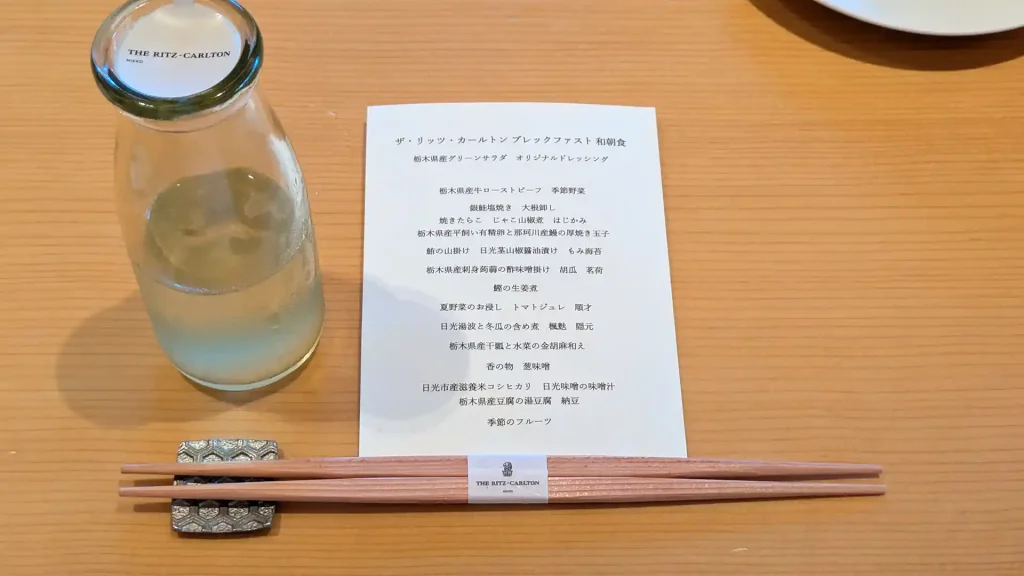 THE RITZ-CARLTON
NIKKO
ザ・リッツ・カールトン ブレックファスト 和朝食
栃木県産グリーンサラダ　オリジナルドレッシング
栃木県産牛ローストビーフ　季節野菜
銀鮭塩焼き　大根卸し
焼きたらこ　じゃこ山椒煮　はじかみ
栃木県産平飼い有精卵と那珂川産鰻の厚焼き玉子
鮪の山掛け　日光茎山椒醤油漬け　もみ海苔
栃木県産刺身蒟蒻の酢味噌掛け　胡瓜　茗荷
鰹の生姜煮
夏野菜のお浸し　トマトジュレ　順才
日光湯波と冬瓜の含め煮　楓麩　隠元
栃木県産干瓢と水菜の金胡麻和え
香の物　葱味噌
日光市産滋養米コシヒカリ　日光味噌の味噌汁
栃木県産豆腐の湯豆腐　納豆
季節のフルーツ
THE RITZ-CARLTON